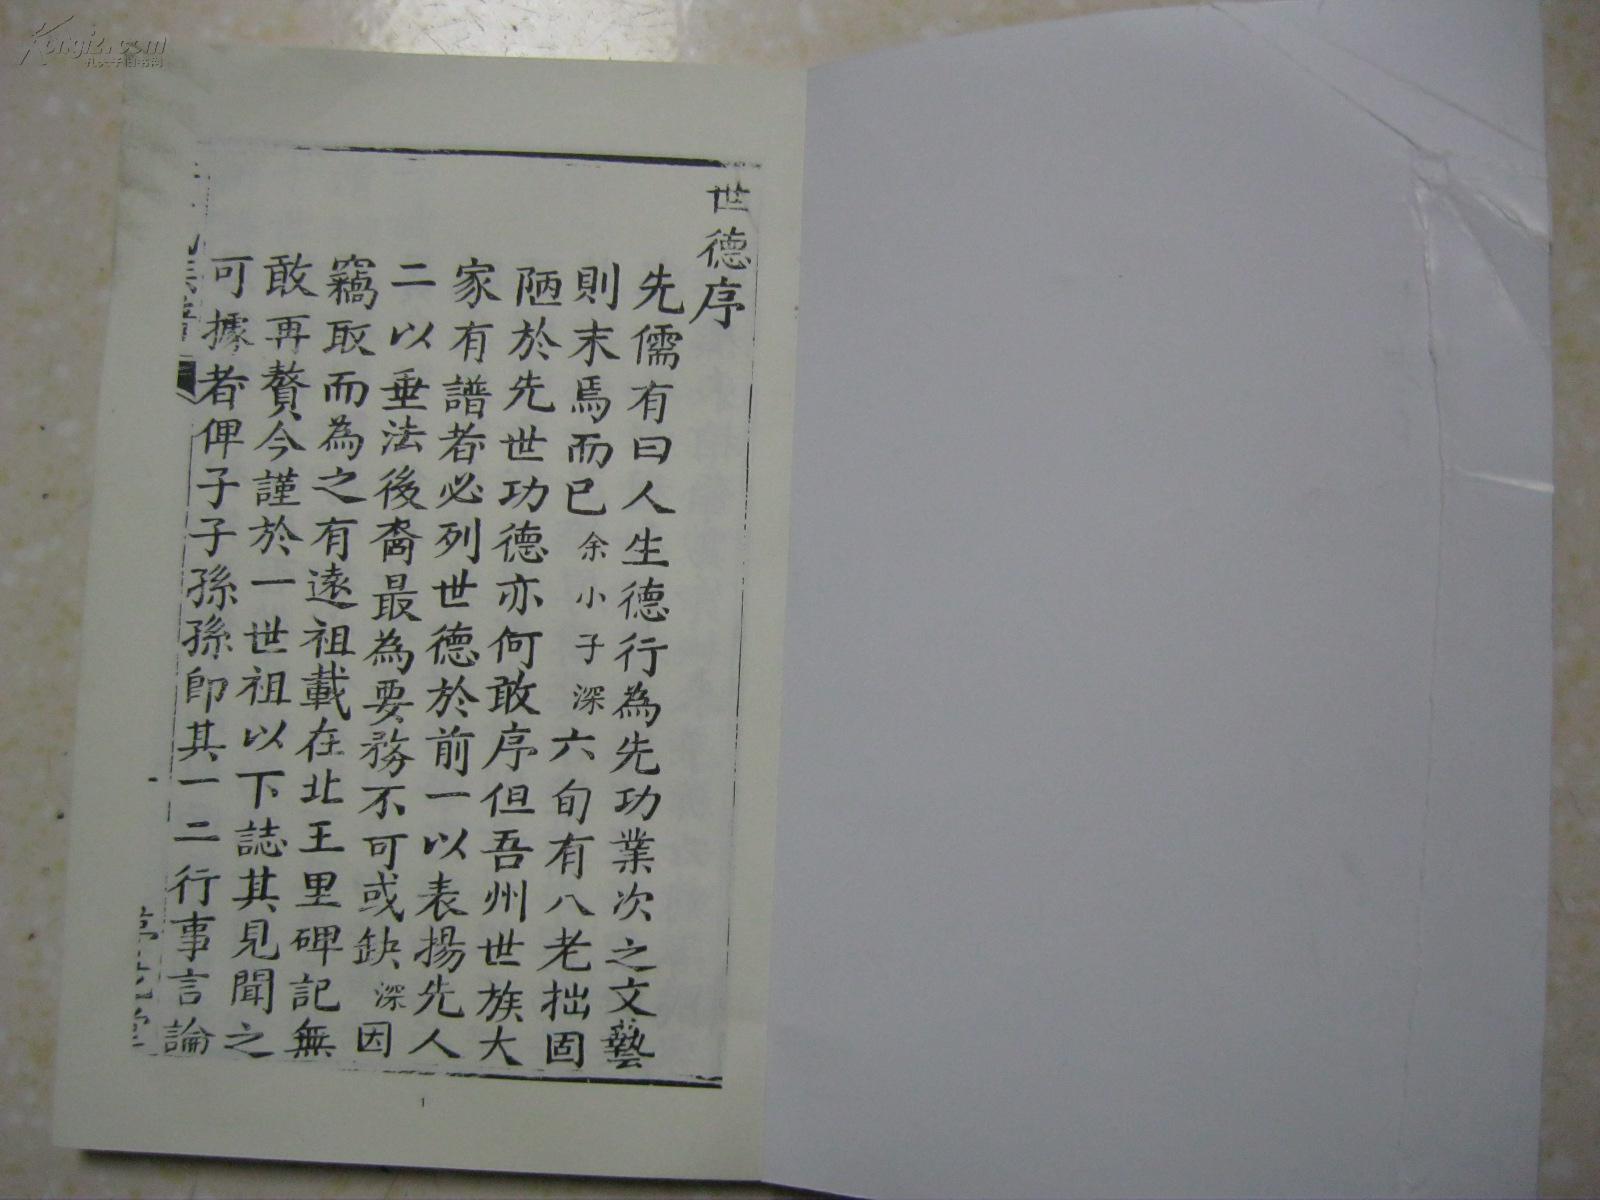 世德序
先儒有曰人生德行為先功業次之文藝
則末焉而已余小子深六旬有八老拙固
陋於先世功德亦何敢序但吾州世族大
家有譜者必列世德於前一以表揚先人
二以垂法後裔最為要務不可或缺深因
竊取而為之有遠祖載在北王里碑記無
敢再贅今謹於一世祖以下誌其見聞之
可據者俾子子孫孫即其一二行事言論
1
Kongfz.com
孔夫子旧书网